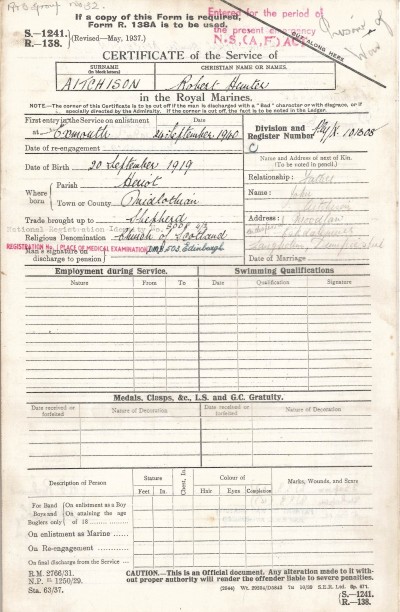 No 32.
If a copy of this Form is required,
Form R. 138A is to be used.
Entered for the period of
the present emergency
N.S.(A.F.) ACT
S.—1241.
R.—138.
(Revised—May, 1937.)
CUT ALONG HERE
Prisoner of
War
CERTIFICATE of the Service of
SURNAME
(In block letters)
CHRISTIAN NAME OR NAMES.
AITCHISON
Robert Hunter
in the Royal Marines.
NOTE.—The corner of this Certificate is to be cut off if the man is discharged with a "Bad" character or with disgrace, or if
specially directed by the Admiralty. If the corner is cut off, the fact is to be noted in the Ledger.
First entry in the Service on enlistment
at Exmouth 24 September 1940
Date of re-engagement
Date of Birth 20 September 1919
Where
born
Parish Heriot
Town or County Midlothian
Trade brought up to Shepherd
National Registration Identity No.
Religious Denomination Church of Scotland
REGISTRATION No. PLACE OF MEDICAL EXAMINATION Edinburgh
Man's signature on
discharge to pension
Division and
Register Number
Ply/X 101608
C
Name and Address of next of Kin.
(To be noted in pencil.)
Relationship: Father
Name: John
Aitchison
Address:
Date of Marriage
Employment during Service.
Swimming Qualifications
Nature
From
To
Date
Qualification
Signature
Medals, Clasps, &c., L.S. and G.C. Gratuity.
Date received or
forfeited
Nature of Decoration
Date received or
forfeited
Nature of Decoration
Description of Person
Stature
Feet
In.
Chest, In.
Colour of
Hair
Eyes
Complexion
Marks, Wounds, and Scars
For Band
Boys and
Buglers only
On enlistment as a Boy
On attaining the age
of 18
On enlistment as Marine
On Re-engagement
On final discharge from the Service
R.M. 2766/31.
N.P. 1250/29.
Sta. 63/37.
CAUTION.—This is an Official document. Any alteration made to it without
proper authority will render the offender liable to severe penalties.
S.—1241.
R.—138.